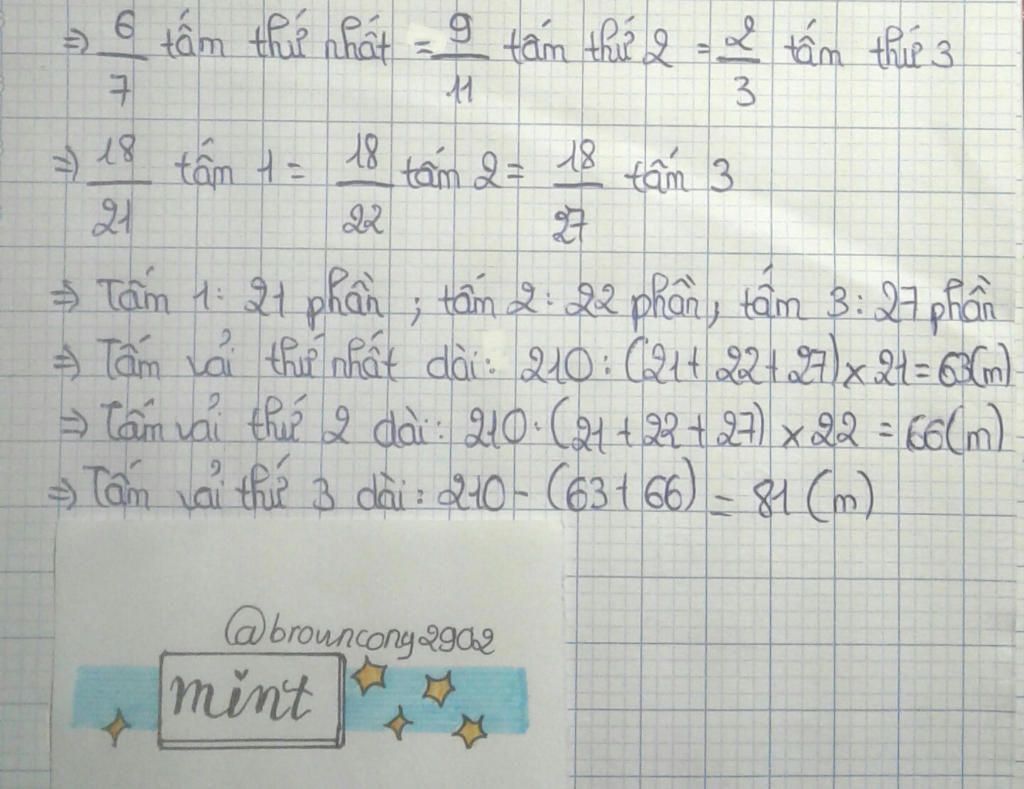 ⇒ 6/7 tấm thứ nhất = 9/11 tấm thứ 2 = 2/3 tấm thứ 3
⇒ 18/21 tấm 1 = 18/22 tấm 2 = 18/27 tấm 3
⇒ Tấm 1: 21 phần; tấm 2: 22 phần, tấm 3: 27 phần
⇒ Tấm vải thứ nhất dài: 210 : (21 + 22 + 27) × 21 = 63(m)
⇒ Tấm vải thứ 2 dài: 210 : (21 + 22 + 27) × 22 = 66(m)
⇒ Tấm vải thứ 3 dài: 210 - (63 + 66) = 81 (m)
@brouncony2902
mint